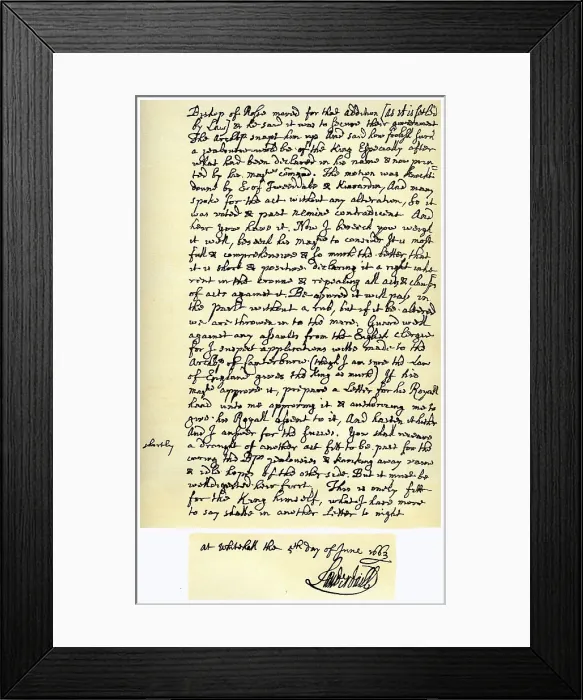 Bishop of Rosse moved for that addition [as it is setled
by Law] & he said it was to secure their government
The ArchBp snapt him up And said how foolish such
a jealousie must be of the King Especially after
what had been declared in his name & now prin
ted by his maties comand. The motion was knockt
doune by E: of Tweeddale & Kincardin, And many
spoke for the act without any alteration, So it
was voted & past nemine contradicent And
hear you have it. Now I beseech you weigh
it well, beseech his matie to consider It is most
full & comprehensive & so much the better that
it is short & positive declaring it a right inhe
rent in the croune & repealing all acts & clauses
of acts against it. Be assured it will pass in
the parlt without a rub, but if it be altered
we are throwen in to the mare. Guard well
against any assaults from the English clergie
for I suspect applications wilbe made to the
ArchBp of Canterburie (though I am sure the law
of England gives the King as much) If his
matie approve it, prepare a Letter for his Royall
hand unto me approving it & authorizing me to
give his Royall assent to it, And hasten it hither
And I answer for the success. You shall receave
shortly
a draught of another act fitt to be past for the
Bps jealousies & taking away vaine
& idle hopes of the other side. But it must be
well digested hear first. This is only fitt
for the King himself, what I have more
to say shall be in another Letter to night
at Whitehall the 5th day of June 1663
Lauderdaill